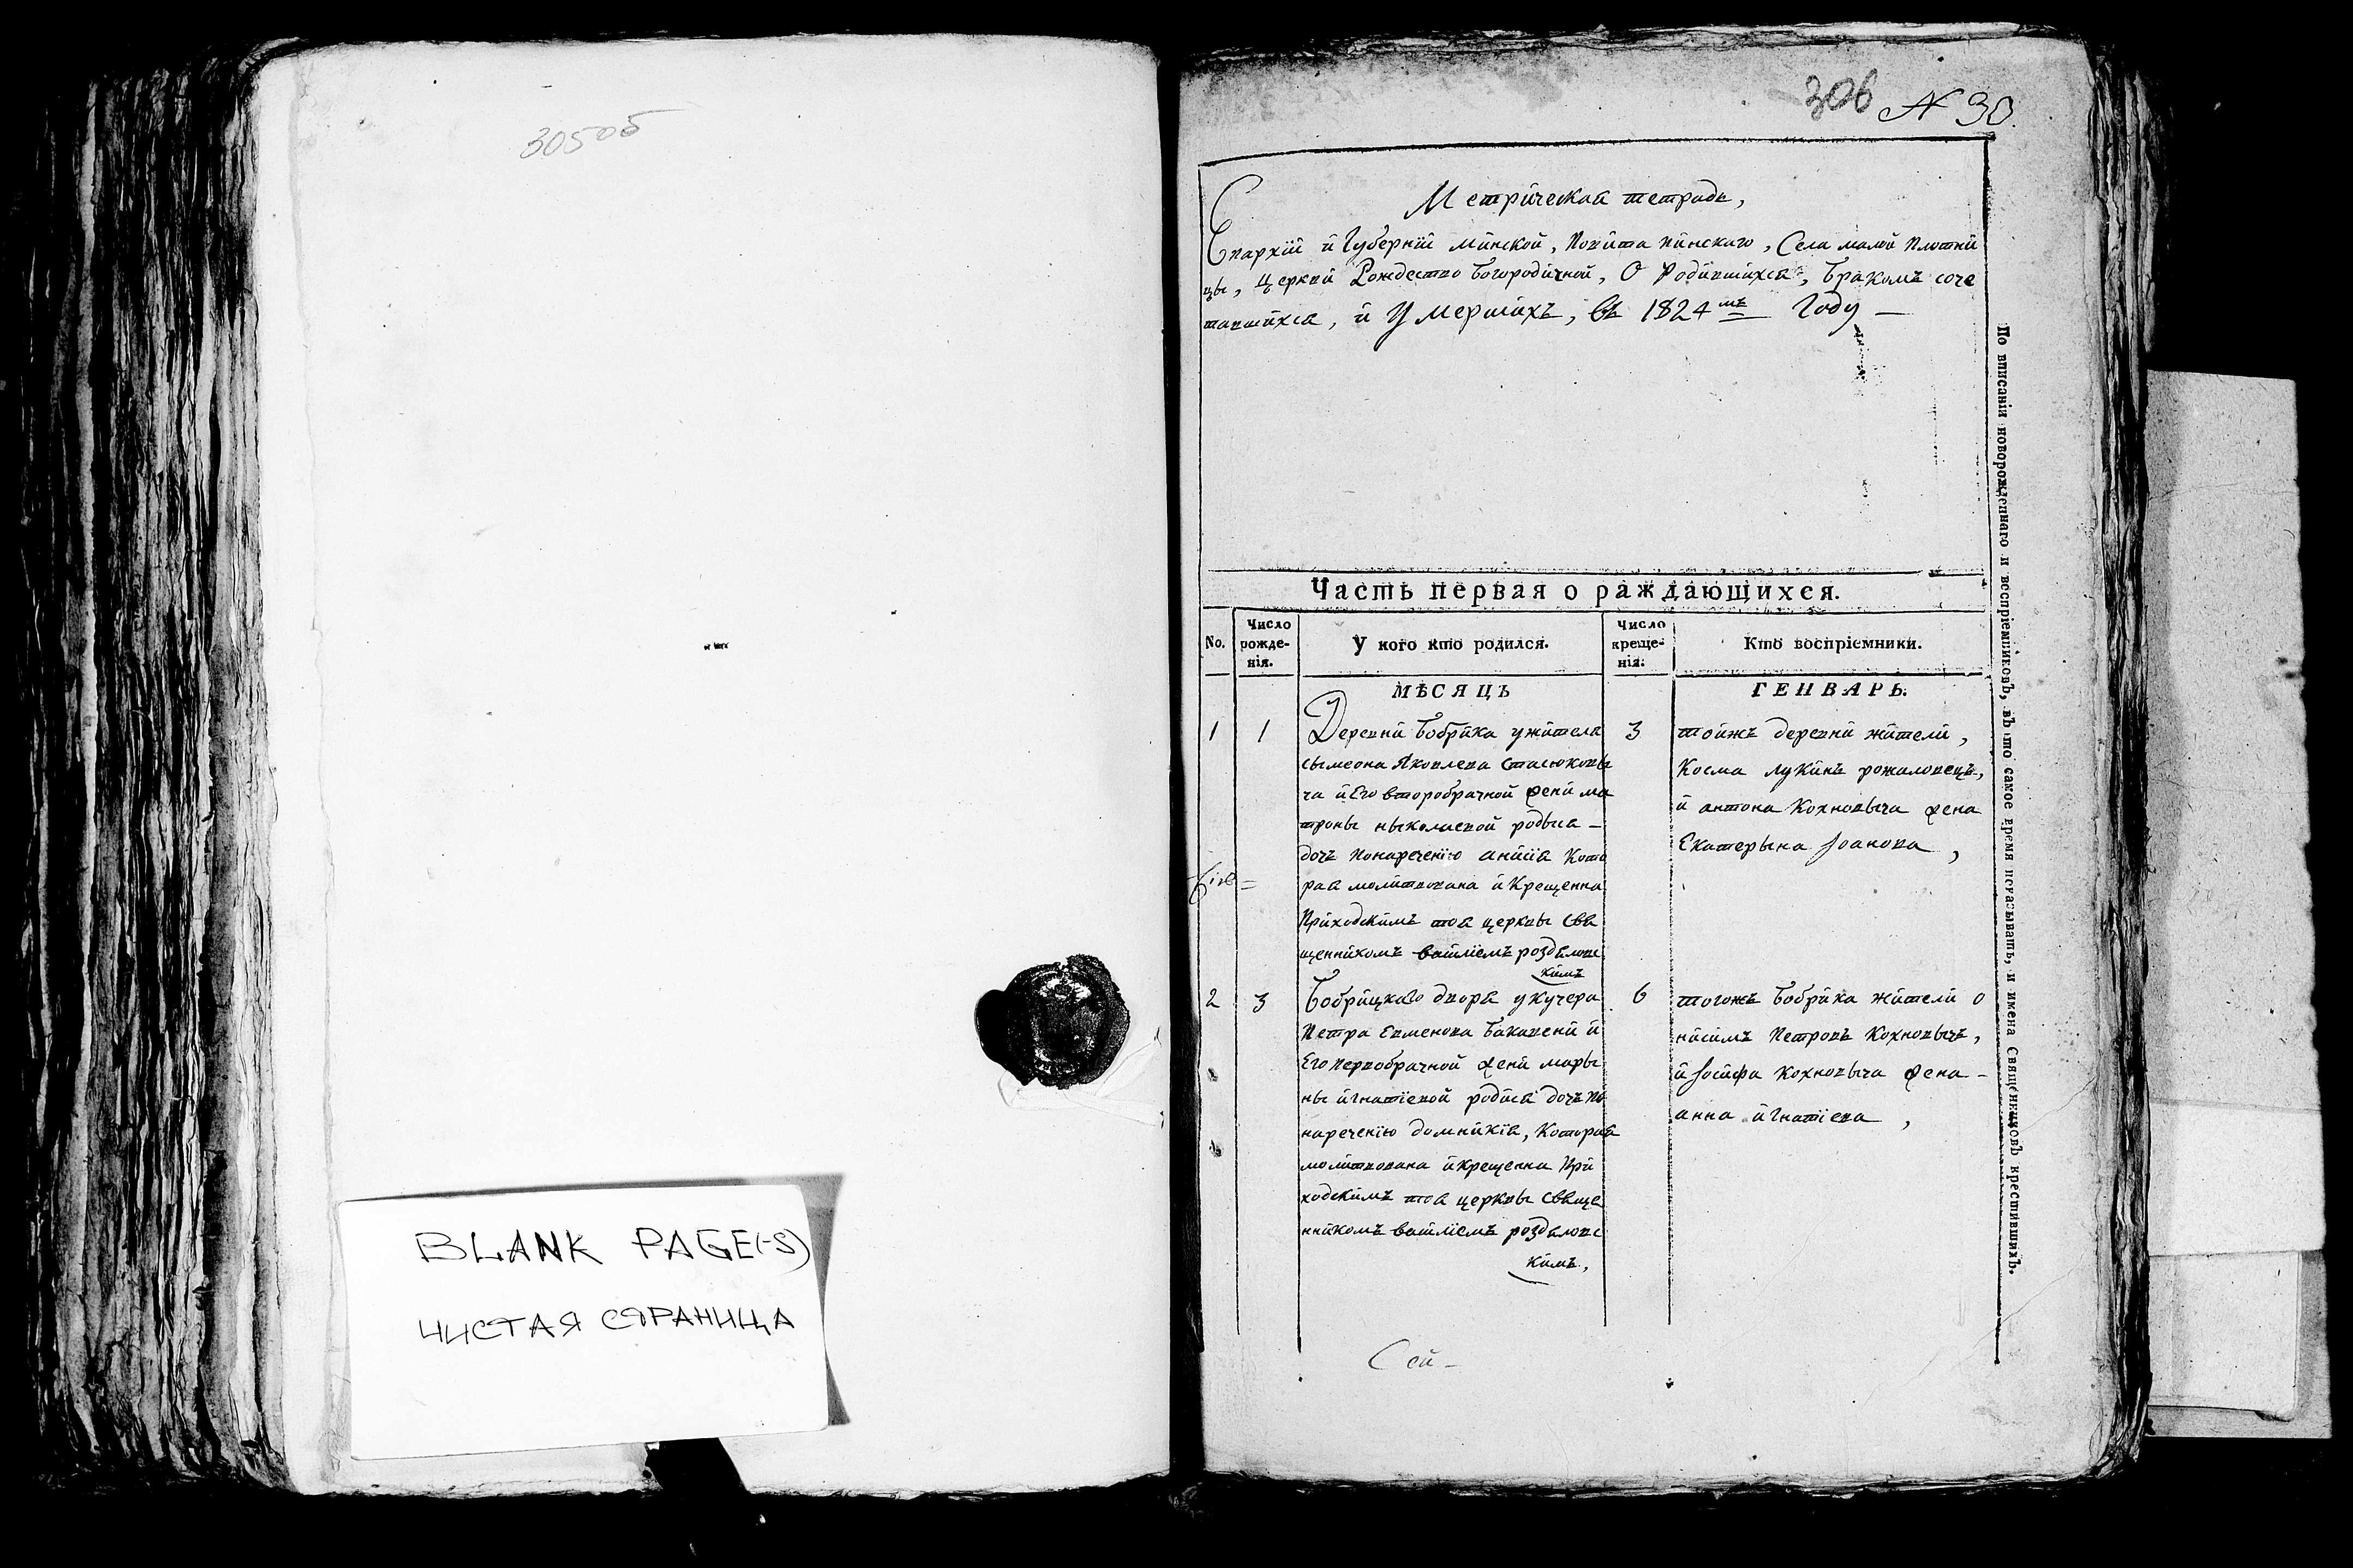 305об
BLANK PAGE(-S)
ЧИСТАЯ СТРАНИЦА
306 N 30.
Метрическая тетрадь,
Епархіи и Губерніи минской, Повѣта пинскаго, Села малой плотни
цы, Церкви Рождество богородичной, О Родившихся, бракомъ соче
тавшихся, и Умершихъ, въ 1824мъ Году
Часть первая о раждающихся.
No.
Число рожде-нія.
У кого кто родился.
Число креще-нія:
Кто воспріемники.
МѢСЯЦЪ
ГЕНВАРЬ.
1 1
Деревни бобрика ужителя
сымеона Яковлева стасюковы
ча и Его второбрачной жени ма
троны
родыся
дочь понареченію анисія Кото
рая молитвована и Крещенна
Приходскимъ тоя церквы Свя
щенникомъ
кимъ
3
тоижъ деревни жители,
Косма лукинъ рожаловецъ,
и антона Кохновыча жена
Екатерына Іоанова,
2 3
бобрицкаго двора укучера
Петра Евменова и
Его первобрачной жени мары
ны игнатіевой родися дочь по
нареченію домникія, Которая
молитвована икрещенна При
ходскимъ тоя церквы Свяще
нникомъ
кимъ,
6
тогожъ бобрика жители о
нисимъ Петровъ Кохновычъ,
и Іосифа Кохновыча жена
анна игнатіева,
Сей
По вписаніи новорожденнаго и воспріемниковъ, въ то самое время показывать, и имена Священниковъ крестившихъ.